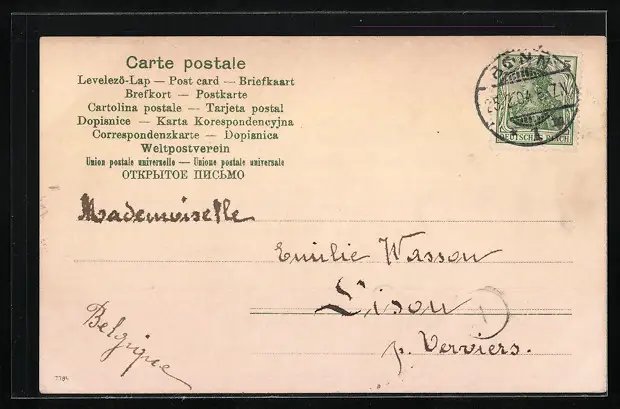 Carte postale
Levelező-Lap — Post card — Briefkaart
Brefkort — Postkarte
Cartolina postale — Tarjeta postal
Dopisnice — Karta Korespondencyjna
Correspondenzkarte — Dopisnica
Weltpostverein
Union postale universelle — Unione postale universale
ОТКРЫТОЕ ПИСЬМО
BONN
5
DEUTSCHES REICH
Mademoiselle
Emilie Wasson
Lison
p. Verviers.
Belgique